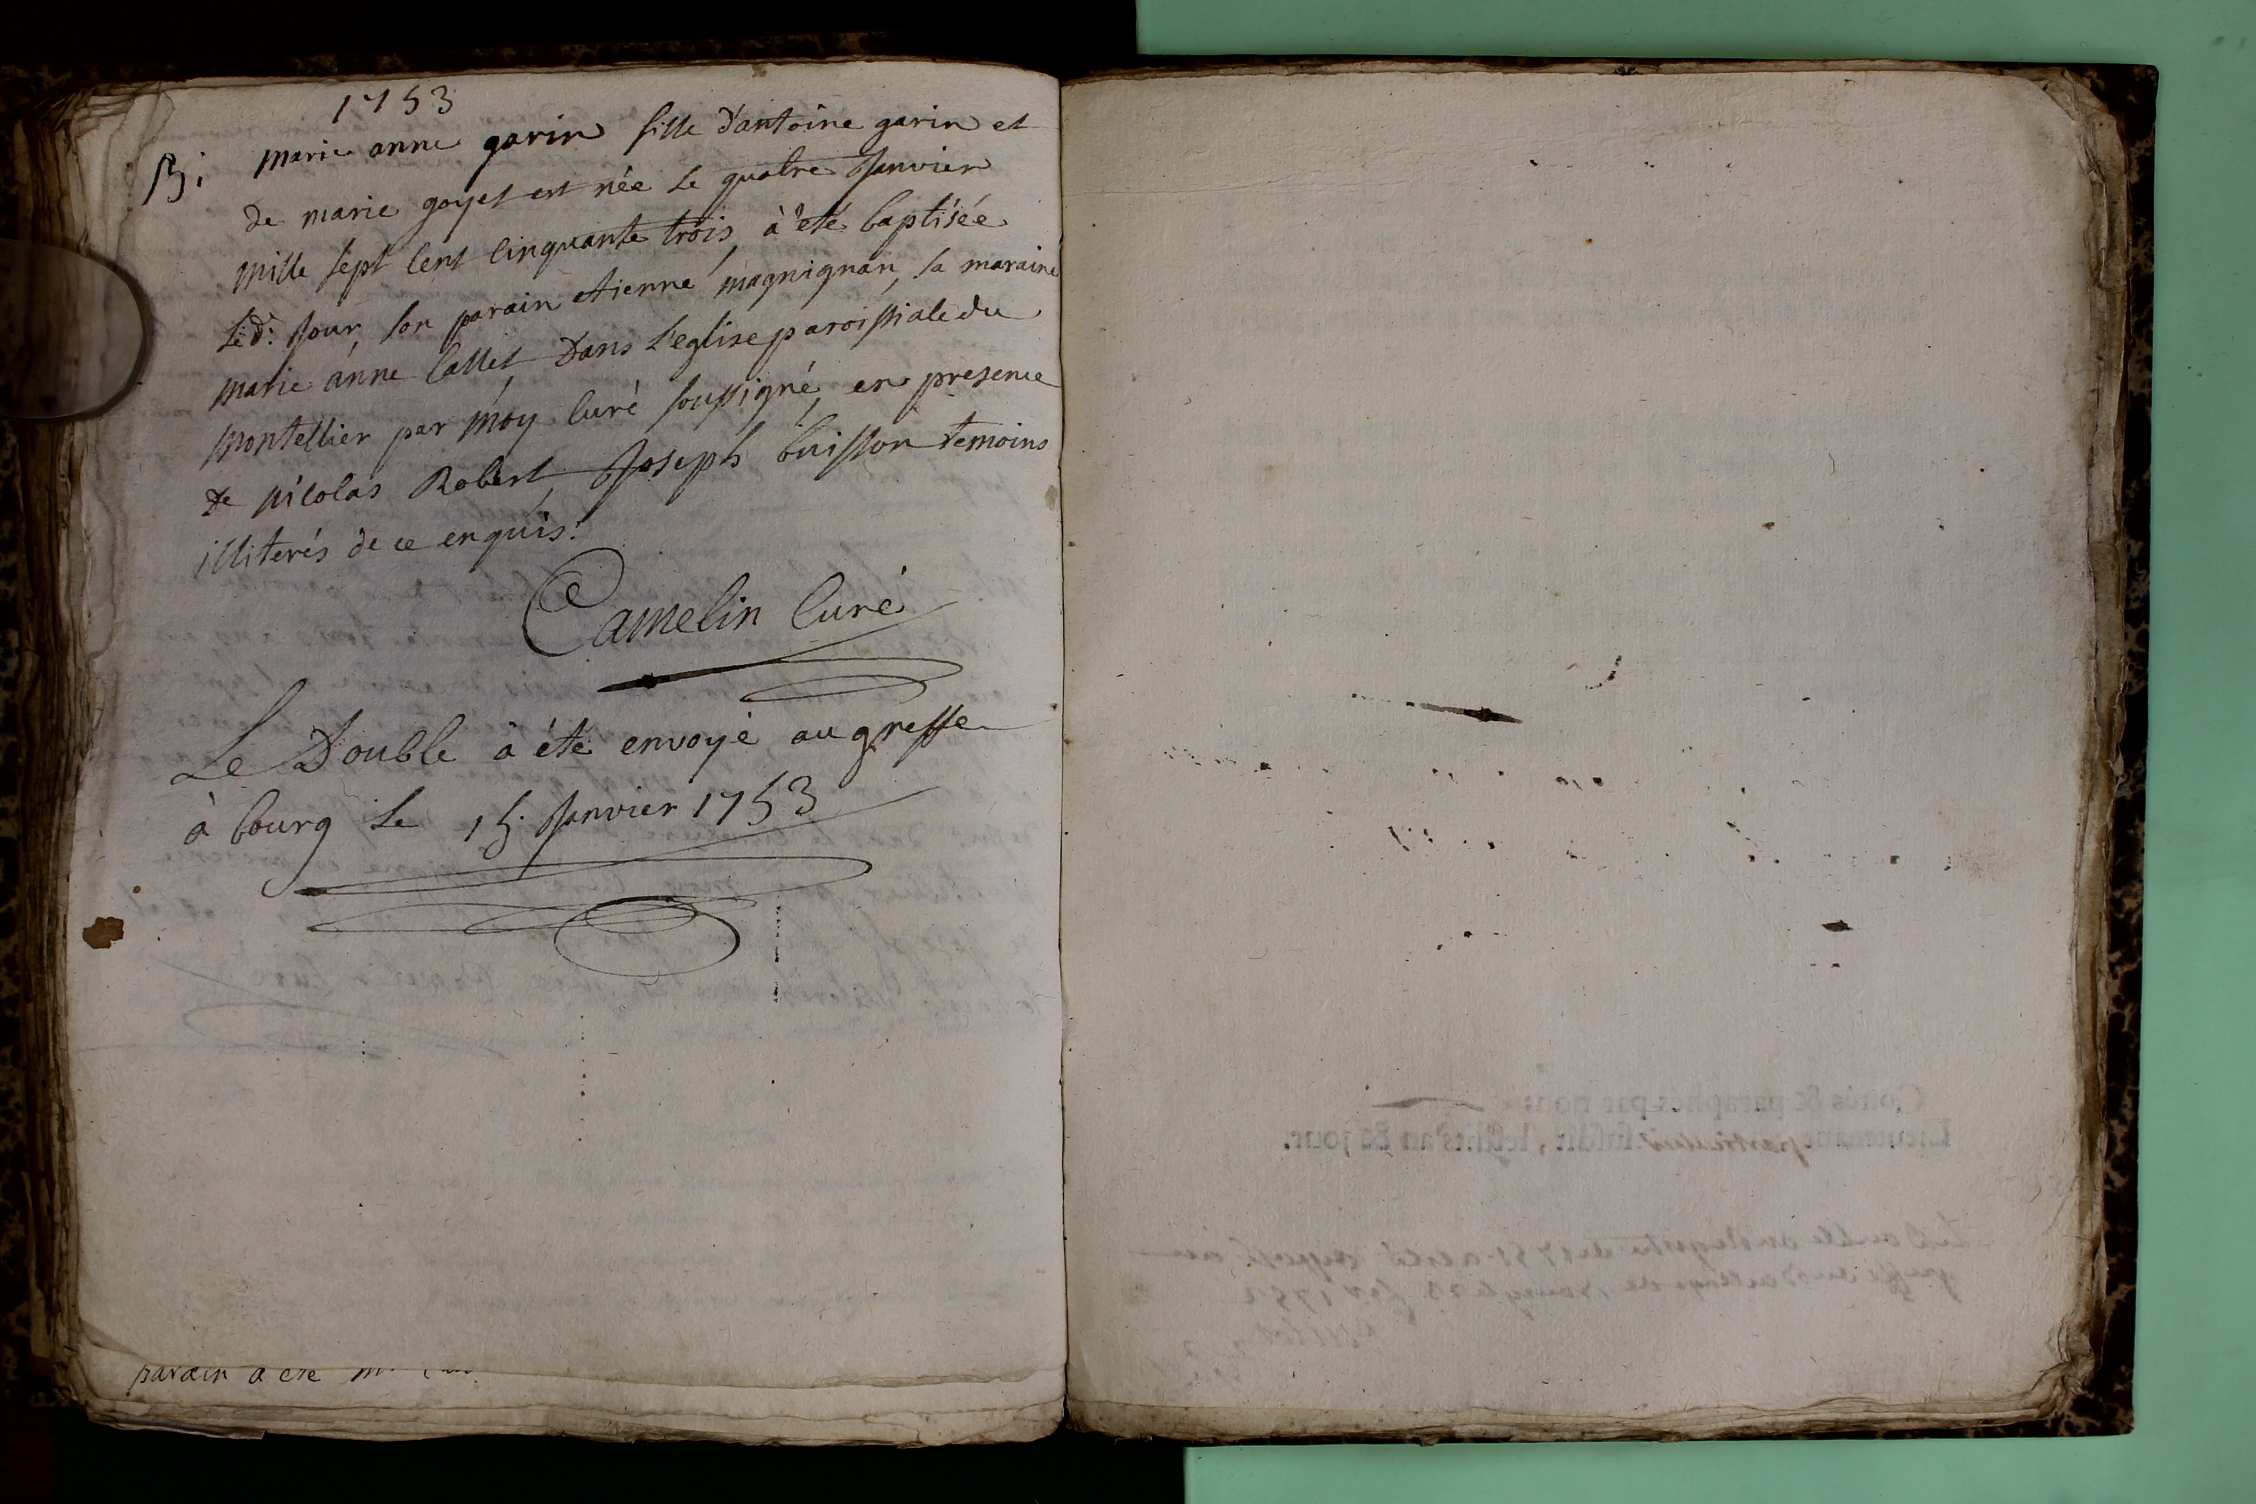 1753
B: marie anne garin fille d'antoine garin et
de marie goyet est née le quatre Janvier
mille sept cent cinquante trois, à été baptisée
led: Jour, son parain etienne magnignan, sa maraine
marie anne Callet Dans l'eglise paroissiale du
montellier par moy curé soussigné, en presence
de nicolas Robert, Joseph buisson temoins
illiterés de ce enquis.
Camelin Curé
Le Double à été envoyé au greffe
à bourg le 15. Janvier 1753
parain a ete
Cottés & paraphés par nous
Lieutenant particulier susdit, lesdits an & jour.